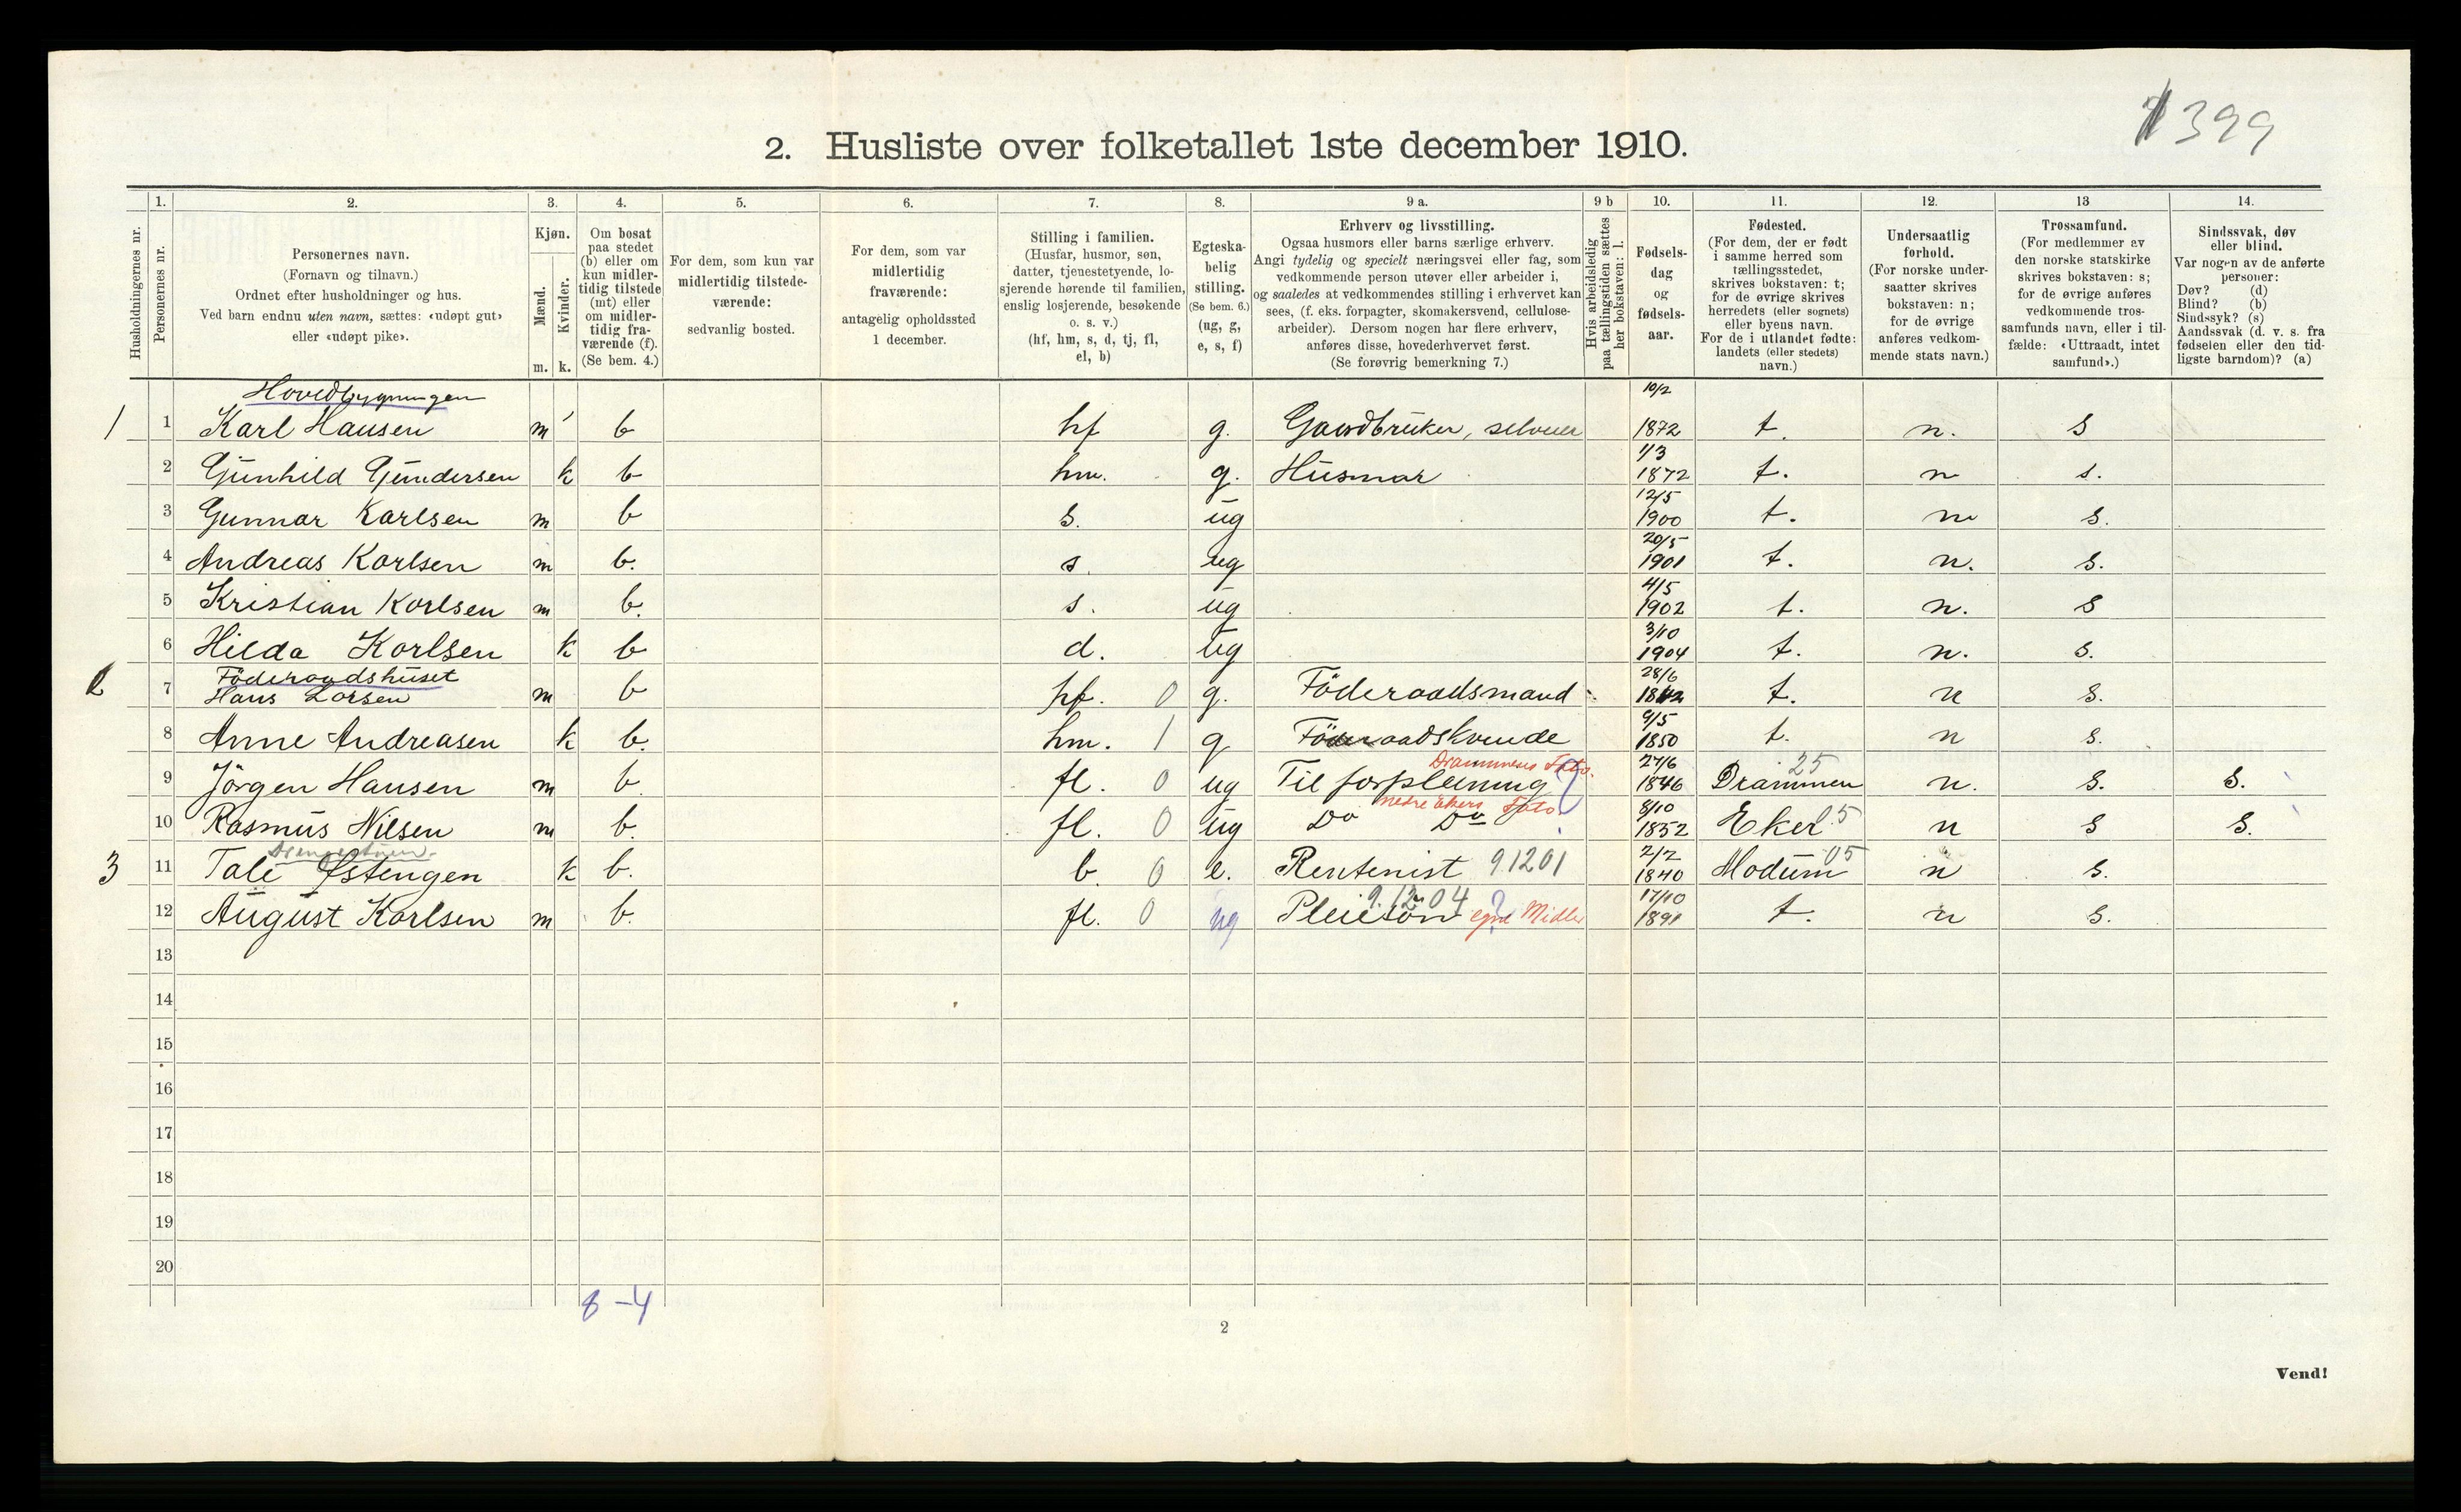 1399
2. Husliste over folketallet 1ste december 1910.
1. 2. 3. 4. 5. 6. 7. 8. 9 a. 9 b 10. 11. 12. 13 14.
Husholdningernes nr.
Personernes nr.
Personernes navn.
(Fornavn og tilnavn.)
Ordnet efter husholdninger og hus.
Ved barn endnu uten navn, sættes: «udøpt gut»
eller «udøpt pike».
Kjøn.
Mænd.
Kvinder.
m. k.
Om bosat
paa stedet
(b) eller om
kun midler-
tidig tilstede
(mt) eller
om midler-
tidig fra-
værende (f).
(Se bem. 4.)
For dem, som kun var
midlertidig tilstede-
værende:
sedvanlig bosted.
For dem, som var
midlertidig
fraværende:
antagelig opholdssted
1 december.
Stilling i familien.
(Husfar, husmor, søn,
datter, tjenestetyende, lo-
sjerende hørende til familien,
enslig losjerende, besøkende
o. s. v.)
(hf, hm, s, d, tj, fl,
el, b)
Egteska-
belig
stilling.
(Se bem. 6.)
(ug, g,
e, s, f)
Erhverv og livsstilling.
Ogsaa husmors eller barns særlige erhverv.
Angi tydelig og specielt næringsvei eller fag, som
vedkommende person utøver eller arbeider i,
og saaledes at vedkommendes stilling i erhvervet kan
sees, (f. eks. forpagter, skomakersvend, cellulose-
arbeider). Dersom nogen har flere erhverv,
anføres disse, hovederhvervet først.
(Se forøvrig bemerkning 7.)
Hvis arbeidsledig
paa tællingstiden sættes
her bokstaven: l.
Fødsels-
dag
og
fødsels-
aar.
Fødested.
(For dem, der er født
i samme herred som
tællingsstedet,
skrives bokstaven: t;
for de øvrige skrives
herredets (eller sognets)
eller byens navn.
For de i utlandet fødte:
landets (eller stedets)
navn.)
Undersaatlig
forhold.
(For norske under-
saatter skrives
bokstaven: n;
for de øvrige
anføres vedkom-
mende stats navn.)
Trossamfund.
(For medlemmer av
den norske statskirke
skrives bokstaven: s;
for de øvrige anføres
vedkommende tros-
samfunds navn, eller i til-
fælde: «Uttraadt, intet
samfund».)
Sindssvak, døv
eller blind.
Var nogen av de anførte
personer:
Døv? (d)
Blind? (b)
Sindssyk? (s)
Aandssvak (d. v. s. fra
fødselen eller den tid-
ligste barndom)? (a)
Hovedbygningen 10/2
1 1 Karl Hansen m b hf g. Gaardbruker, selveier 1872 t. n. s
1/3
2 Gunhild Gundersen k b hm. g. Husmor 1872 t. n s.
12/5
3 Gunnar Karlsen m b s. ug 1900 t. n s.
20/5
4 Andreas Karlsen m b. s. ug 1901 t. n. s.
4/5
5 Kristian Karlsen m b. s. ug 1902 t. n. s
3/10
6 Hilda Karlsen k b d. ug 1904 t. n. s.
Föderaadshuset 28/6
2 7 Hans Larsen m b hf. 0 g. Föderaadsmand 1842 t. n s.
9/5
8 Anne Andreasen k b. hm. 1 g Föderaadskvinde 1850 t. n s.
Drammens Fato. 27/6 25
9 Jörgen Hansen m b. fl. 0 ug Til forpleining ? 1846 Drammen n. s. S.
nedre Ekers Fato 8/10
10 Rasmus Nilsen m b. fl. 0 ug Do Do 1852 Eker 5 n s S.
2/2 05
3 11 Tale Østengen k b. b. 0 e. Rentenist 91201 1840 Modum n s.
9.12.04 17/10
12 August Karlsen m b. fl. 0 ug Pleiesön egne Midler ? 1891 t. n s.
13
14
15
16
17
18
19
20
8-4
2
Vend!